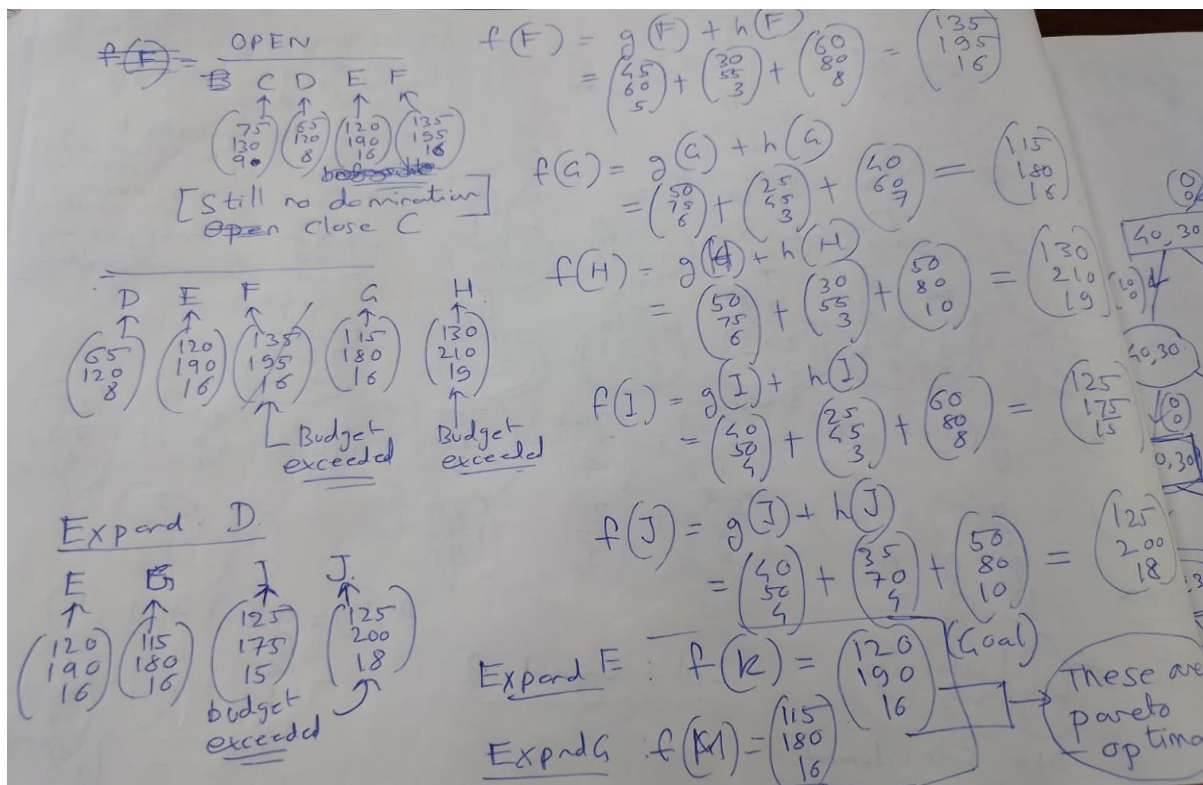 OPEN
C D E F
↑ ↑ ↑ ↑
(75 130 9) (65 120 8) (120 190 16) (135 195 16)
[Still no domination]
close C
D E F G H
↑ ↑ ↑ ↑ ↑
(65 120 8) (120 190 16) (135 195 16) (115 180 16) (130 210 19)
Budget exceeded
Budget exceeded
Expand D.
E G I J.
↑ ↑ ↑ ↑
(120 190 16) (115 180 16) (125 175 15) (125 200 18)
budget exceeded
f(F) = g(F) + h(F)
= (45 60 5) + (30 55 3) + (60 80 8) = (135 195 16)
f(G) = g(G) + h(G)
= (50 75 6) + (25 45 3) + (40 60 7) = (115 180 16)
f(H) = g(H) + h(H)
= (50 75 6) + (30 55 3) + (50 80 10) = (130 210 19)
f(I) = g(I) + h(I)
= (40 50 4) + (25 45 3) + (60 80 8) = (125 175 15)
f(J) = g(J) + h(J)
= (40 50 4) + (35 70 4) + (50 80 10) = (125 200 18)
Expand E : f(K) = (120 190 16) (Goal)
Expnd G : f(M) = (115 180 16)
These are
pareto
optima
40, 30
40,30
0,30